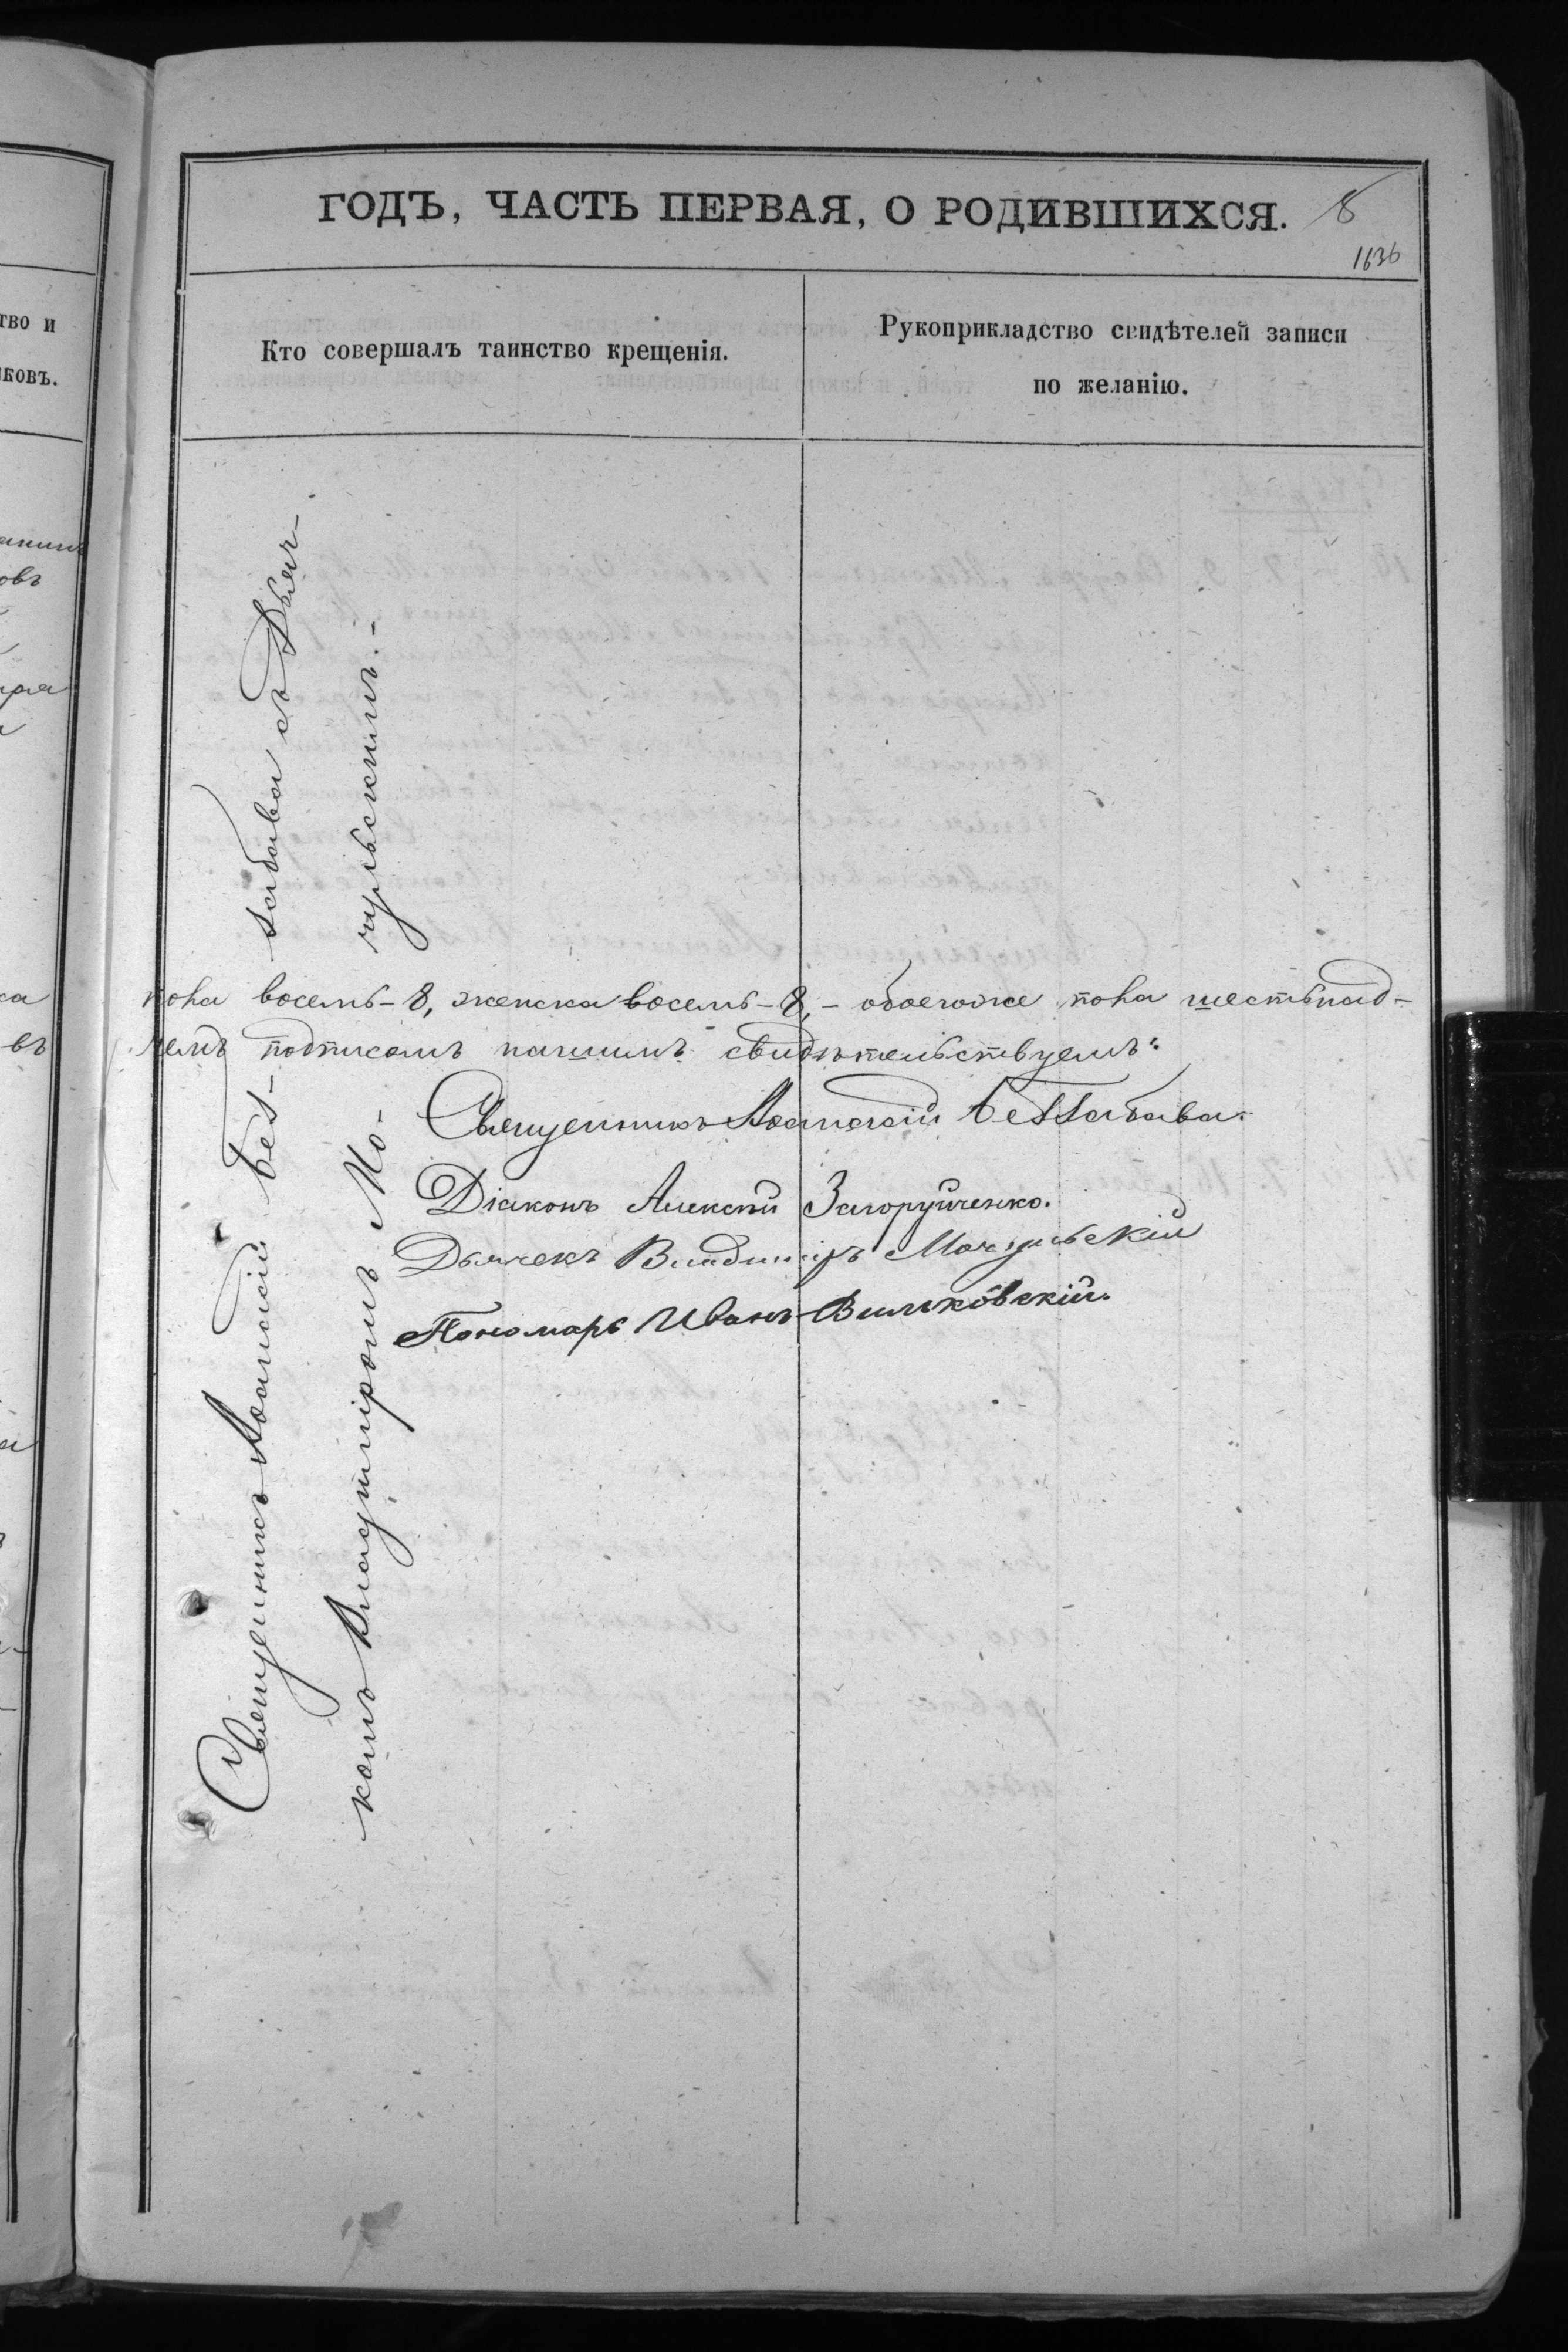 ГОДЪ, ЧАСТЬ ПЕРВАЯ, О РОДИВШИХСЯ. 8
1636
тво и
иковъ.
Кто совершалъ таинство крещенія.
Рукоприкладство свидѣтелей записи
по желанію.
Священникъ Аѳанасій Без-
забава съ Дьяч-
комъ Владиміромъ Мо-
чульскимъ.-
пола восемь-8, женска восемь-8,- обоегоже пола шестьнад-
чемъ подписомъ нашимъ свидѣтельствуемъ:
Священникъ Аѳанасій Беззабава.
Діаконъ Алексѣй Загоруйченко.
Дьячекъ Владиміръ Мочульскій
Пономарь Иванъ Вильковскій.